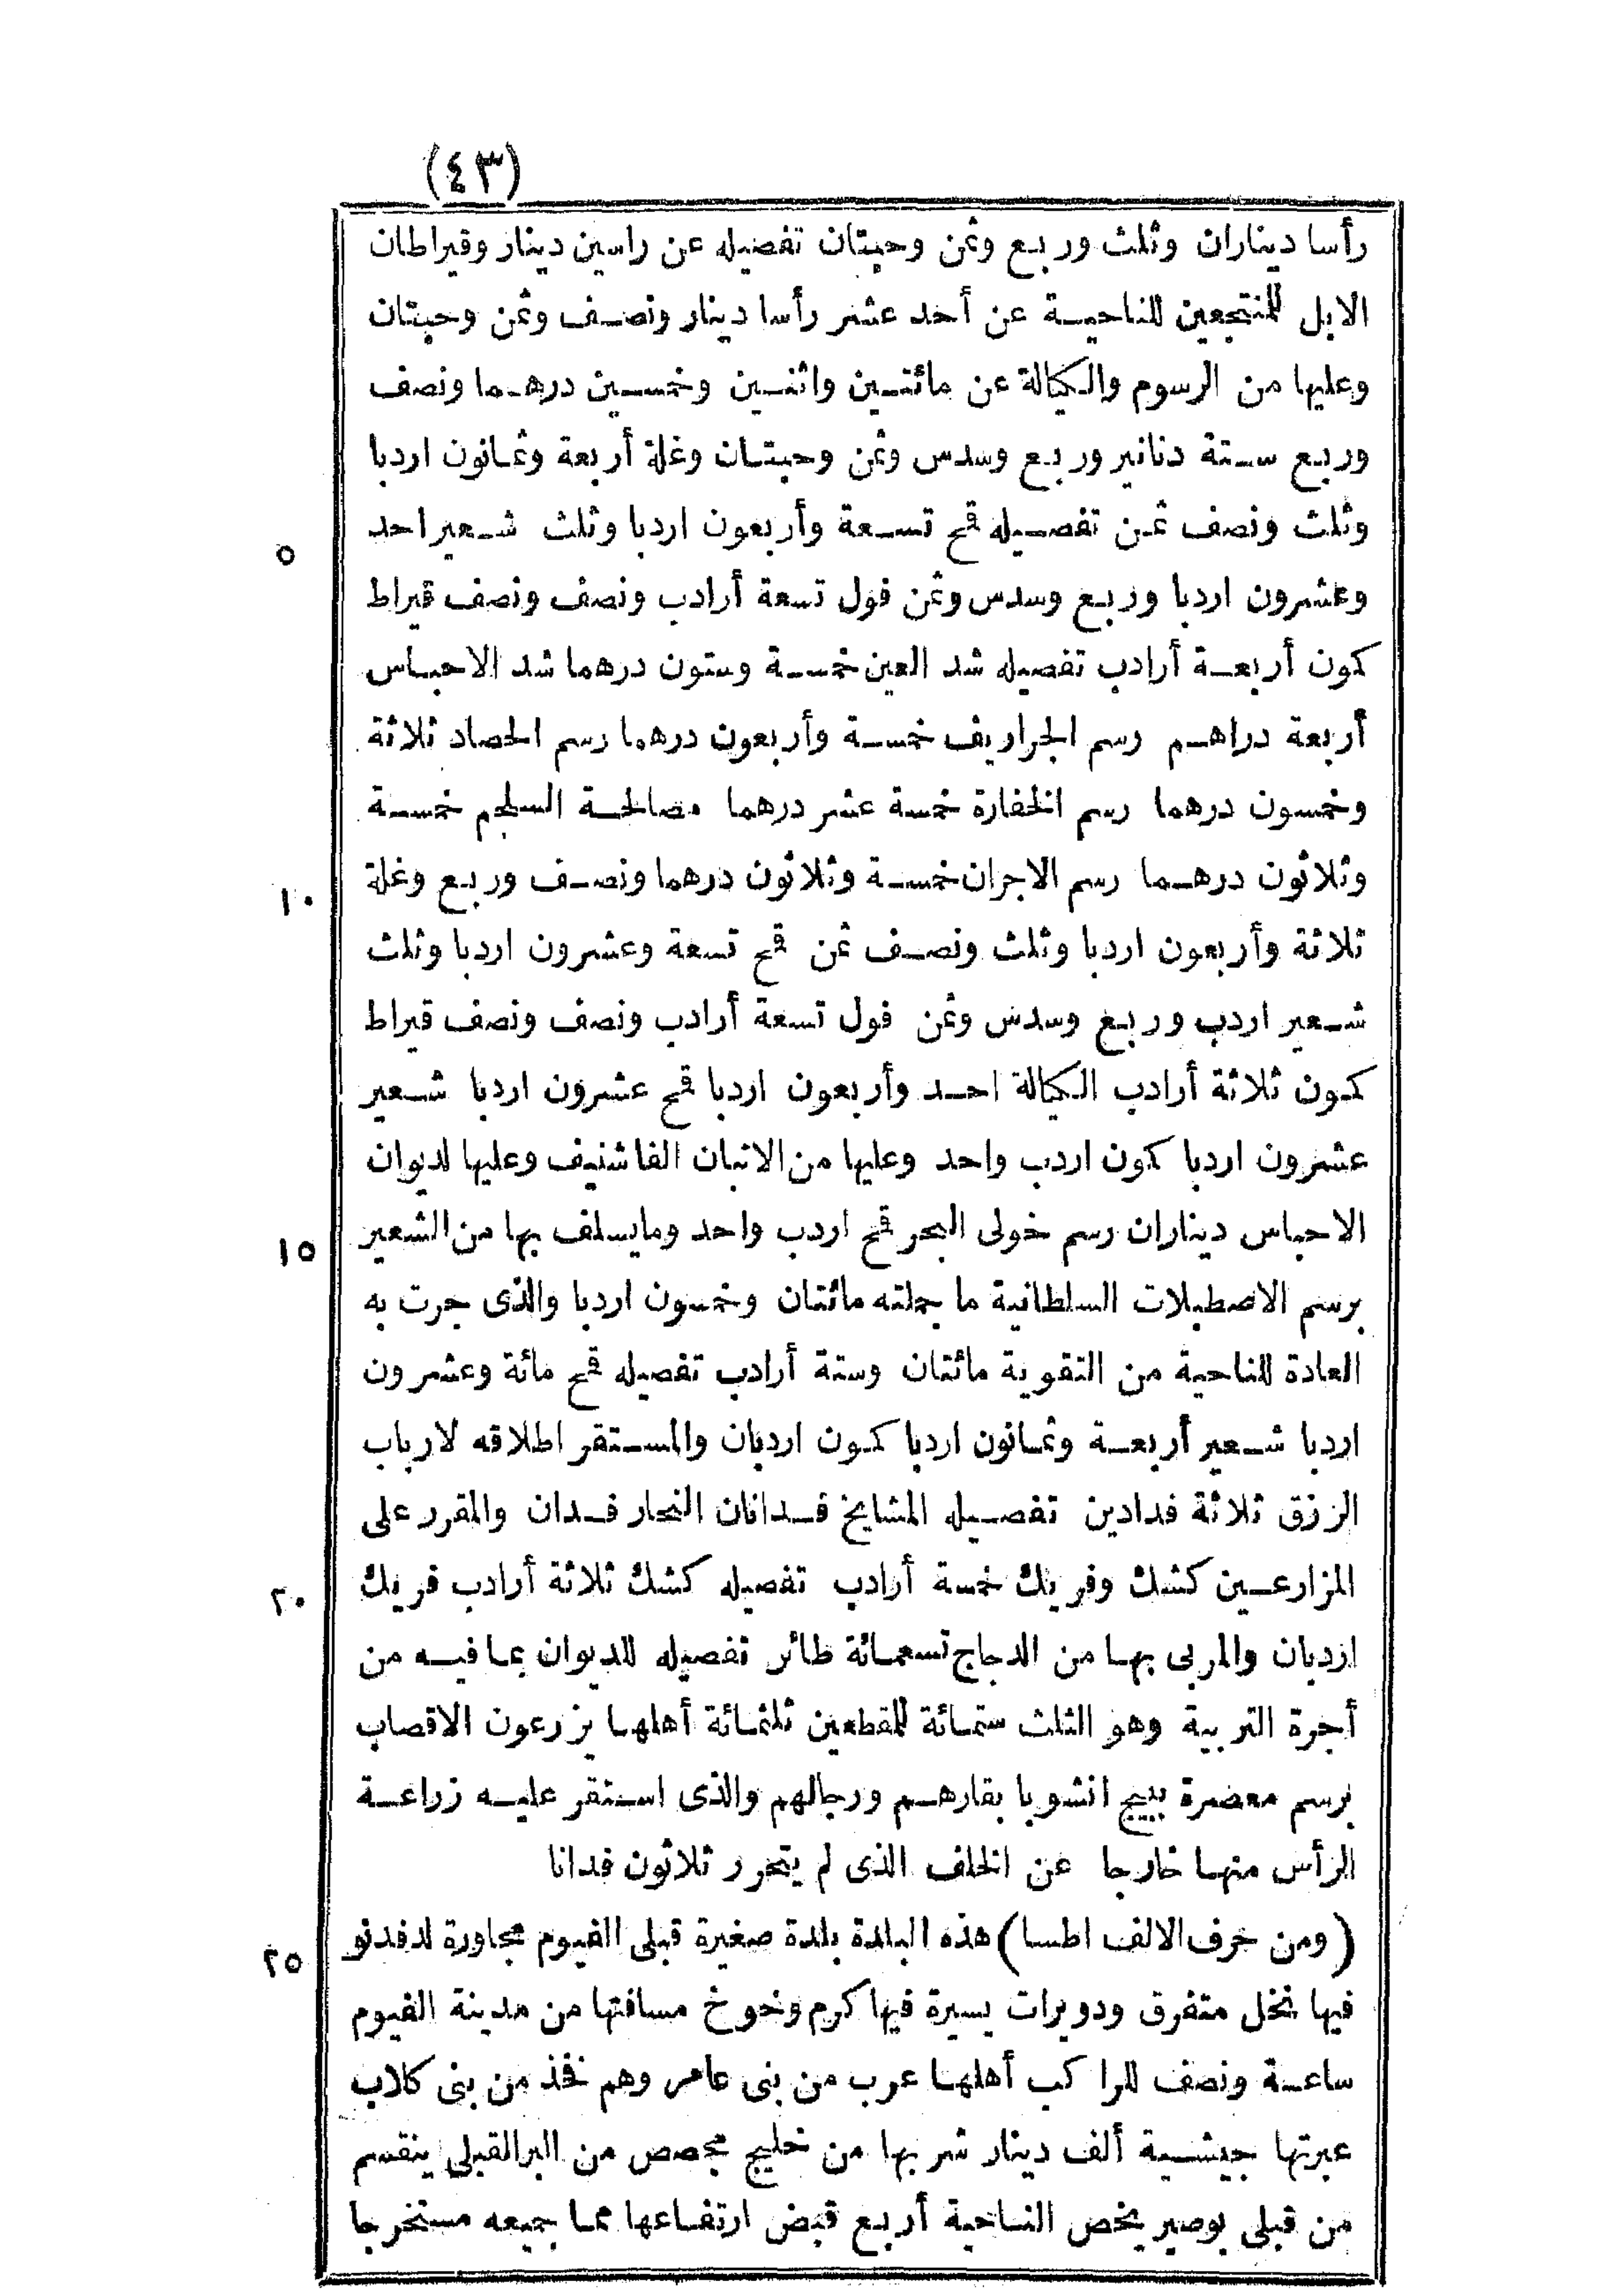 (٤٣)
رأسا ديناران وثلث وربع وثمن وحبتان تفصيله عن راسين دينار وقيراطان
الابل للمنتجعين للناحية عن أحد عشر رأسا دينار ونصف وثمن وحبتان
وعليها من الرسوم والكيالة عن مائتين واثنين وخمسين درهما ونصف
وربع ستة دنانير وربع وسدس وثمن وحبتان وغلة أربعة وثمانون اردبا
وثلث ونصف ثمن تفصيله قمح تسعة وأربعون اردبا وثلث شعير احد
٥
وعشرون اردبا وربع وسدس وثمن فول تسعة أرادب ونصف ونصف قيراط
كمون أربعة أرادب تفصيله شد العين خمسة وستون درهما شد الاحباس
أربعة دراهم رسم الجراريف خمسة وأربعون درهما رسم الحصاد ثلاثة
وخمسون درهما رسم الخفارة خمسة عشر درهما مصالحة السلجم خمسة
وثلاثون درهما رسم الاجران خمسة وثلاثون درهما ونصف وربع وغلة
١٠
ثلاثة وأربعون اردبا وثلث ونصف ثمن قمح تسعة وعشرون اردبا وثلث
شعير اردب وربع وسدس وثمن فول تسعة أرادب ونصف ونصف قيراط
كمون ثلاثة أرادب الكيالة احد وأربعون اردبا قمح عشرون اردبا شعير
عشرون اردبا كمون اردب واحد وعليها من الاتبان الفا شنيف وعليها لديوان
الاحباس ديناران رسم خولى البحر قمح اردب واحد وما يسلف بها من الشعير
١٥
برسم الاصطبلات السلطانية ما جملته مائتان وخمسون اردبا والذى جرت به
العادة للناحية من التقوية مائتان وستة أرادب تفصيله قمح مائة وعشرون
اردبا شعير أربعة وثمانون اردبا كمون اردبان والمستقر اطلاقه لارباب
الرزق ثلاثة فدادين تفصيله المشايخ فدانان النجار فدان والمقرر على
المزارعين كشك وفريك خمسة أرادب تفصيله كشك ثلاثة أرادب فريك
٢٠
اردبان والمربى بها من الدجاج تسعمائة طائر تفصيله للديوان بما فيه من
أجرة التربية وهو الثلث ستمائة للمقطعين ثلثمائة أهلها يزرعون الاقصاب
برسم معصرة ببيج انشو با بقارهم ورجالهم والذى استقر عليه زراعة
الرأس منها خارجا عن الخلف الذى لم يتحرر ثلاثون فدانا
(ومن حرف الالف اطسا) هذه البلدة بلدة صغيرة قبلى الفيوم مجاورة لدفدنو
٢٥
فيها نخل متفرق ودويرات يسيرة فيها كرم وخوخ مسافتها من مدينة الفيوم
ساعة ونصف للراكب أهلها عرب من بنى عامر وهم فخذ من بنى كلاب
عبرتها جيشية ألف دينار شربها من خليج مخصص من البر القبلى ينقسم
من قبلى بوصير يخص الناحية أربع قبض ارتفاعها مما جميعه مستخرجا